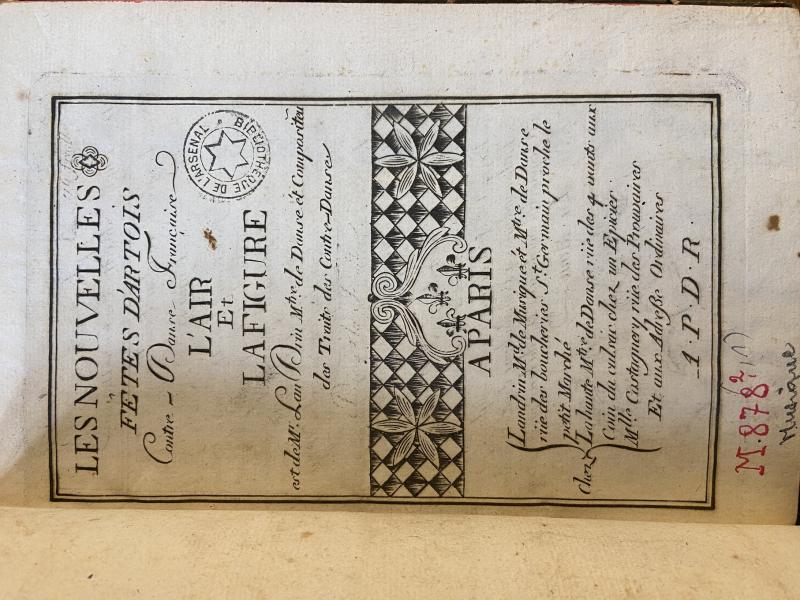 LES NOUVELLES
FÊTES D'ARTOIS
Contre-Danse Française
L'AIR
Et
LA FIGURE
est de Mr. Landrin Mtre. de Danse et Compositeu
des Traits des Contre-Danses
BIBLIOTHÈQUE DE L'ARSENAL
A PARIS
Chez
Landrin Md. de Musique et Mtre. de Danse
rüe des boucheries St. Germain proche le
petit Marché
La hante Mtre. de Danse rüe des 4 vents aux
Coin du culsac chez un Epicier
Mlle. Castagnery rüe des Prouvaires
Et aux Adresse Ordinaires
A. P. D. R
M. 878²
Musique